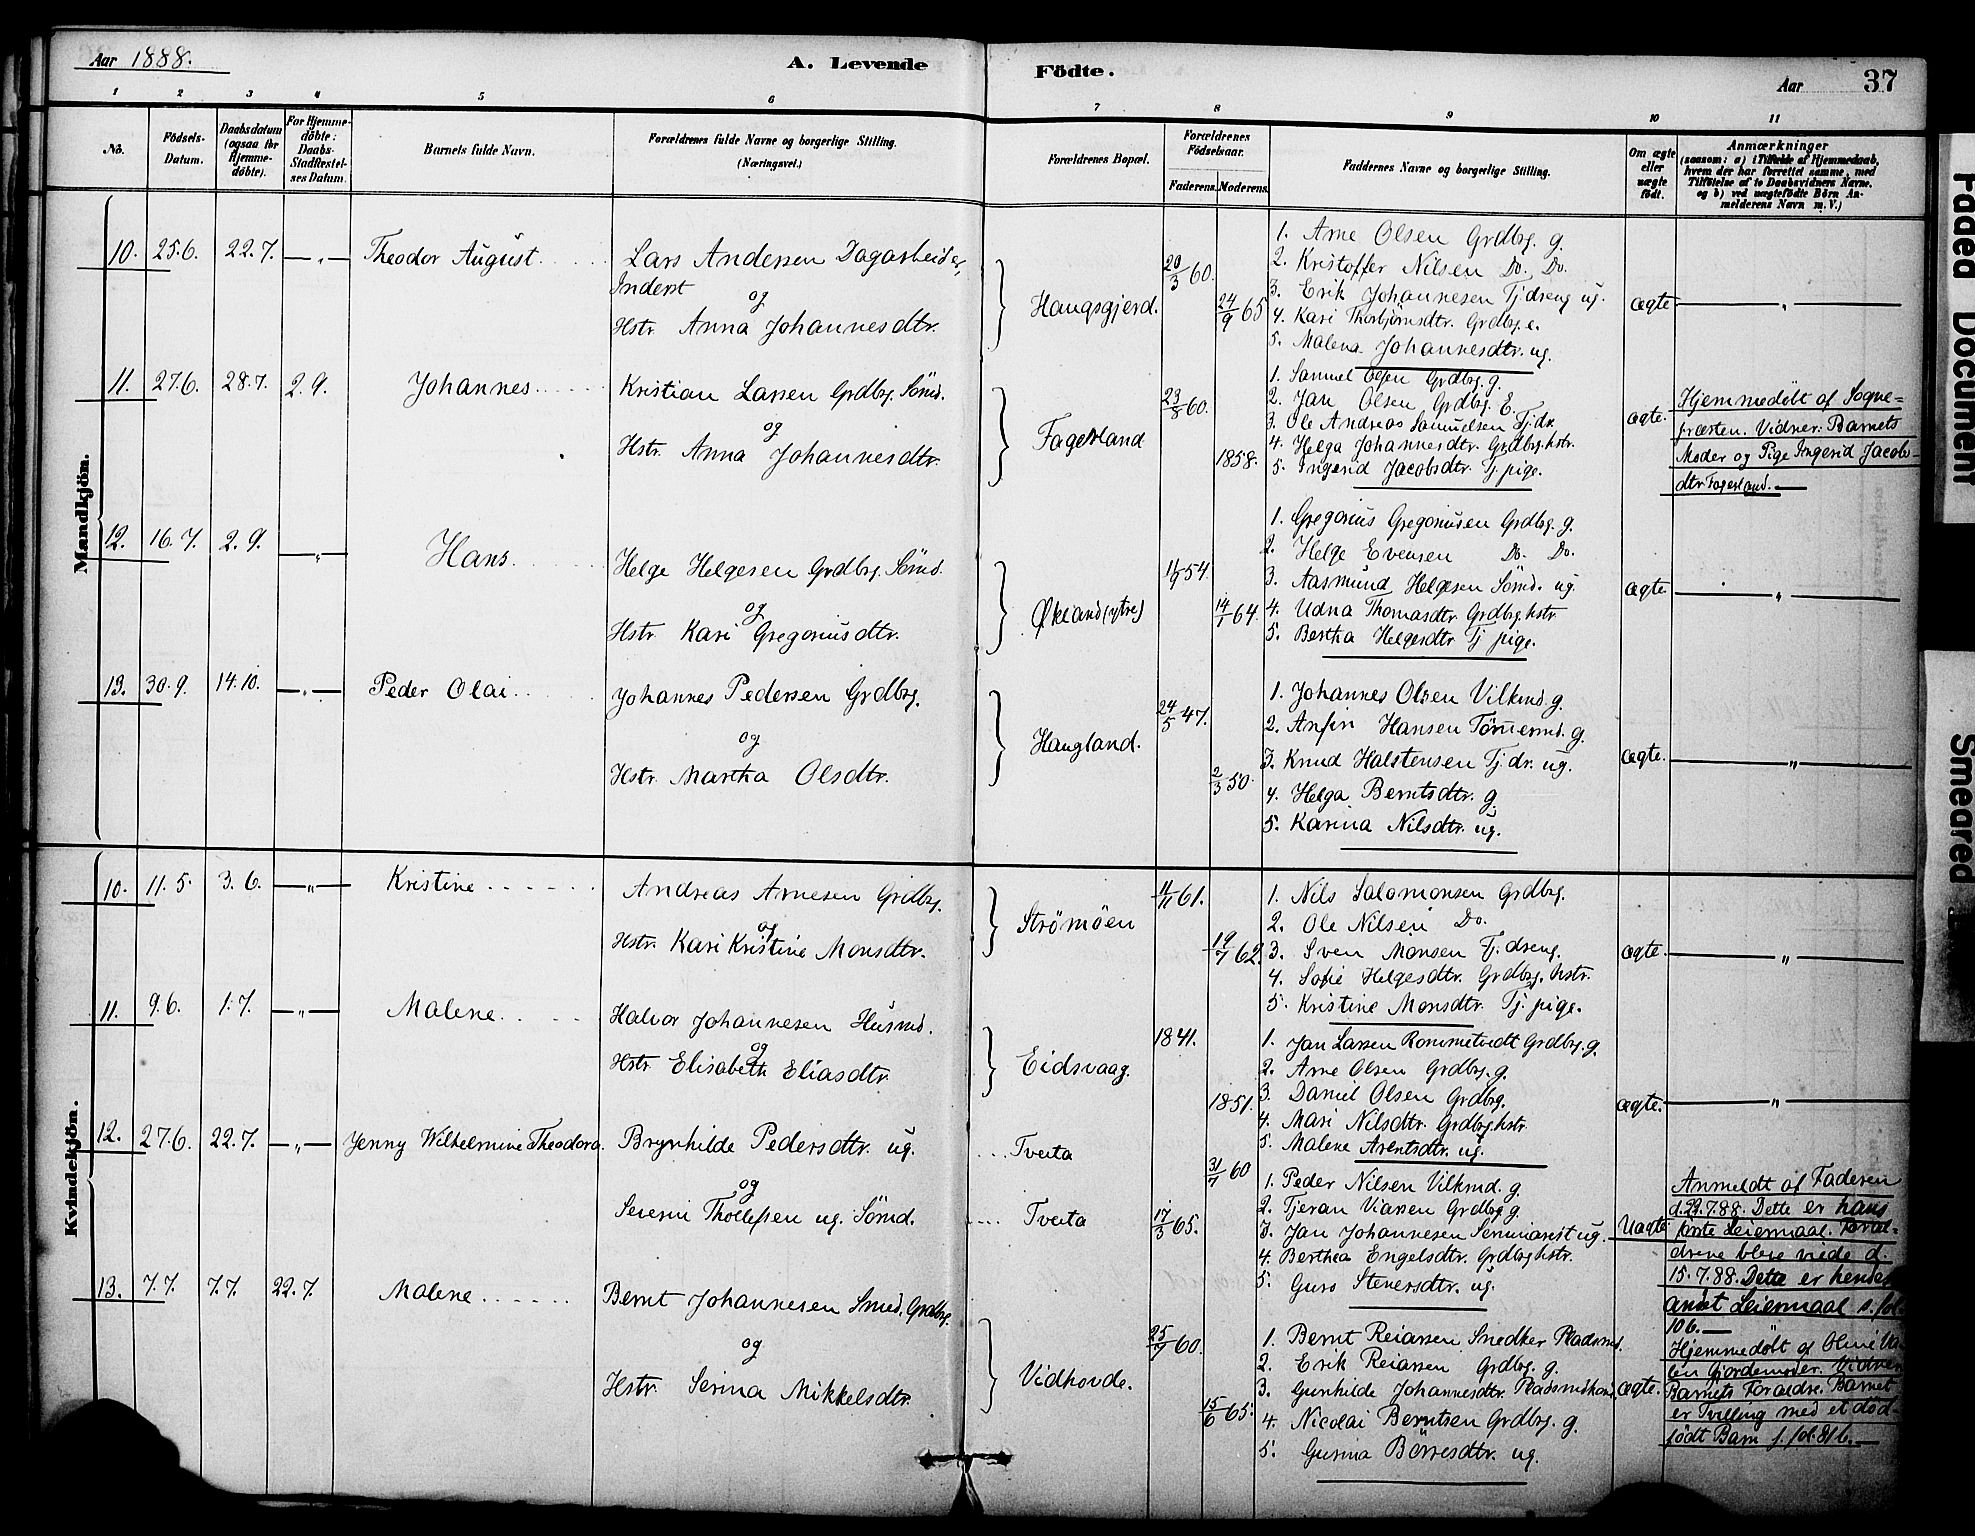 Aar 1888.
A. Levende
Födte.
Aar
37
1
2
3
4
5
6
7
8
9
10
11
No.
Födsels-
Datum.
Daabsdatum
(ogsaa for
Hjemme-
döbte).
For Hjemme-
döbte:
Daabs-
Stadfæstel-
ses Datum.
Barnets fulde Navn.
Forældrenes fulde Navne og borgerlige Stilling.
(Næringsvei.)
Forældrenes Bopæl.
Forældrenes
Födselsaar.
Faderens.
Moderens.
Faddernes Navne og borgerlige Stilling.
Om ægte
eller
uægte
födt.
Anmærkninger
(saasom: a) i Tilfælde af Hjemmedaab,
hvem der har forrettet samme, med
Tilföielse af to Daabsvidners Navne,
og b) ved uægtefödte Börn An-
melderens Navn m. V.)
Mandkjön.
10. 25.6. 22.7. — " —
Theodor August
Lars Andersen Dagarbeider,
Inderst
og
Hstr. Anna Johannesdtr.
Haugsgjerd.
20/3 60.
24/9 65
1. Arne Olsen Grdbrg. g.
2. Kristoffer Nilsen Do. Do.
3. Erik Johannesen Tj.dreng ug.
4. Kari Thorbjørnsdtr. Grdbrg. e.
5. Malena Johannesdtr. ug.
ægte
11. 27.6. 28.7. 2.9.
Johannes
Kristian Larsen Grdbrg. Sømd.
og
Hstr. Anna Johannesdtr.
Fagerland
23/8 60.
1858.
1. Samuel Olsen Grdbrg. g.
2. Jan Olsen Grdbrg. E.
3. Ole Andreas Samuelsen Tj.dr.
4. Helga Johannesdtr. Grdbrg.hstr.
5. Ingerid Jacobsdtr. Tj.pige.
ægte.
Hjemmedøbt af Sogne-
præsten. Vidner: Barnets
Moder og Pige Ingerid Jacobs-
dtr. Fagerland. —
12. 16.7. 2.9. — " —
Hans
Helge Helgesen Grdbrg. Sømd.
og
Hstr. Kari Gregoriusdtr.
Økland (ytre)
11/9 54.
14/1 64.
1. Gregorius Gregoriusen Grdbrg. g.
2. Helge Evensen Do. Do.
3. Aasmund Helgesen Sømd. ug.
4. Udna Thomasdtr. Grdbrg.hstr.
5. Bertha Helgesdtr. Tj.pige.
ægte.
13. 30.9. 14.10. — " —
Peder Olai
Johannes Pedersen Grdbrg.
og
Hstr. Martha Olsdtr.
Haugland.
24/5 47.
2/3 50.
1. Johannes Olsen Vilkmd. g.
2. Anfin Hansen Tømermd. g.
3. Knud Halstensen Tj.dr. ug.
4. Helga Berntsdtr. g.
5. Karina Nilsdtr. ug.
ægte.
Kvindekjön.
10. 11.5. 3.6. — " —
Kristine
Andreas Arnesen Grdbrg.
og
Hstr. Kari Kristine Monsdtr.
Strømøen
11/11 61.
19/7 62.
1. Nils Salomonsen Grdbrg.
2. Ole Nilsen Do.
3. Sven Monsen Tj.dreng.
4. Sofie Helgesdtr. Grdbrg.hstr.
5. Kristine Monsdtr. Tj.pige.
ægte.
11. 9.6. 1.7. — " —
Malene
Halvor Johannesen Husmd.
og
Hstr. Elisabeth Eliasdtr.
Eidsvaag.
1841.
1851.
1. Jan Larsen Rommetvedt Grdbrg. g.
2. Arne Olsen Grdbrg. g.
3. Daniel Olsen Grdbrg.
4. Mari Nilsdtr. Grdbrg.hstr.
5. Malene Arentsdtr. ug.
ægte.
12. 27.6. 22.7. — " —
Jenny Wilhelmine Theodora.
Brynhilde Pedersdtr. ug.
og
Severin Thollefsen ug. Sømd.
Tveita
Tveita
31/7 60
17/3 65.
1. Peder Nilsen Vilkmd. g.
2. Tjeran Viansen Grdbrg. g.
3. Jan Johannesen Seminarist ug.
4. Berthea Engelsdtr. Grdbrg.hstr.
5. Guro Stenersdtr. ug.
Uægte
Anmeldt af Faderen
d. 22.7.88. Dette er hans
første Leiermaal. Foræl-
drene bleve viede d.
15.7.88. Dette er hendes
andet Leiermaal s. fol.
106. —
13. 7.7. 7.7. 22.7.
Malene
Bernt Johannesen Smed. Grdbrg.
og
Hstr. Serina Mikkelsdtr.
Vidhovde.
25/9 60.
15/6 65.
1. Bernt Reiarsen Snedker Pladsmd.
2. Erik Reiarsen Grdbrg. g.
3. Gunhilde Johannesdtr. Pladsmdkone
4. Nicolai Berntsen Grdbrg. g.
5. Gurina Børresdtr. ug.
ægte.
Hjemmedøbt af Oline
Gjordemoder. Vidner
Barnets Forældre. Barnet
er Tvilling med et død-
født Barn s. fol. 816. —
Faded Document
Smeared